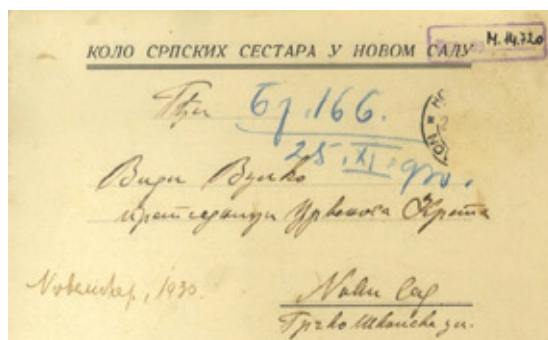 М. 14.720
КОЛО СРПСКИХ СЕСТАРА У НОВОМ САДУ
Гђи
Бр. 166.
25. XI. 930.
Види Вулко
претседници Црвенога Крста
Новембар, 1930.
Нови Сад
Грчко школска ул.